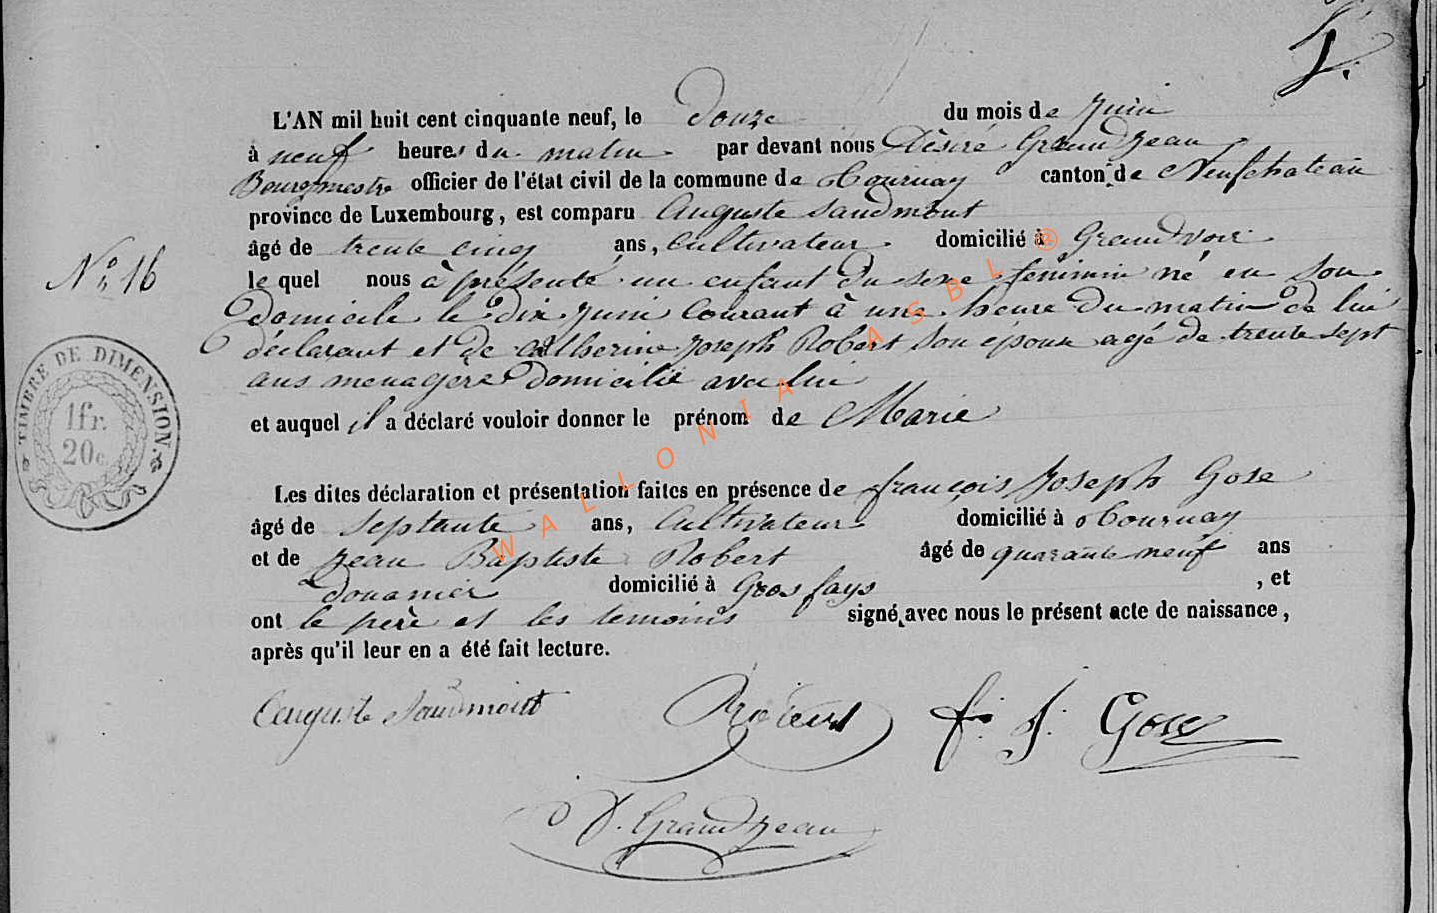 L'AN mil huit cent cinquante neuf, le douze du mois de Juin
à neuf heures du matin par devant nous Désiré Grandjean
Bourgmestre officier de l'état civil de la commune de Tournay canton de Neufchateau
province de Luxembourg, est comparu Auguste Saudmont
âgé de trente cinq ans, Cultivateur domicilié à Grandvoir
N° 16
le quel nous à présenté un enfant du sexe féminin né en son
domicile le dix Juin Courant à une heure du matin de lui
déclarant et de Catherine Joseph Robert son épouse agé de trente sept
ans menagère domicilié avec lui
et auquel il a déclaré vouloir donner le prénom de Marie
TIMBRE DE DIMENSION.
1fr.
20c
Les dites déclaration et présentation faites en présence de françois Joseph Gose
âgé de septante ans, Cultivateur domicilié à Tournay
et de Jean Baptiste Robert âgé de quarante neuf ans
Douanier domicilié à Gros fays , et
ont le père et les temoins signé avec nous le présent acte de naissance,
après qu'il leur en a été fait lecture.
Auguste Saudmont Robert f. J. Gose
D. Grandjean
WALLONIA ASBL ®